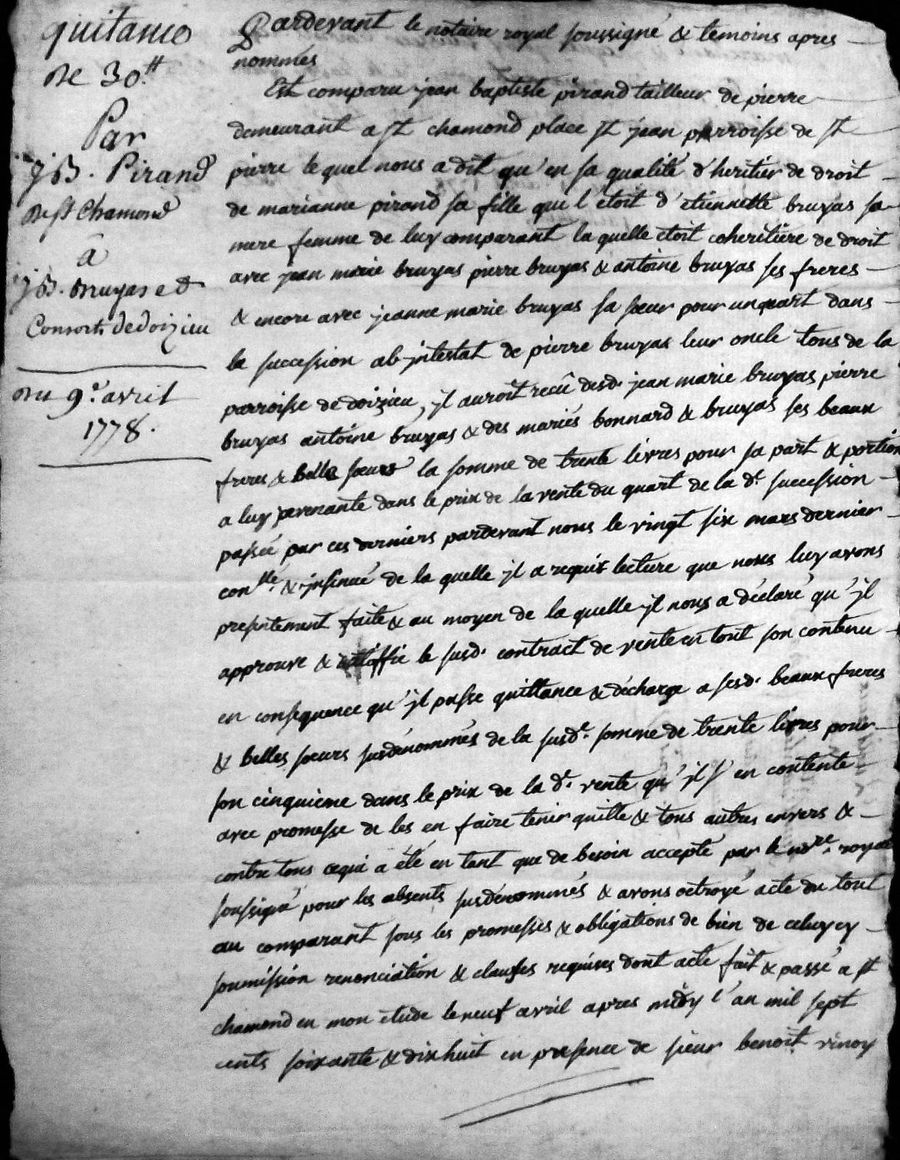 quitance
de 30.tt
Par
J B. Pirand
de st Chamond
á
J B. Bruyas et
Consorts de doizieu
du 9e. avril
1778.
Pardevant le notaire royal soussigné & temoins apres
nommés
Est comparu jean baptiste pirand tailleur de pierre
demeurant a st chamond place st jean parroisse de st
pierre le quel nous a dit qu'en sa qualité d'heritier de droit
de marianne pirand sa fille que l'étoit d'étiennette bruyas sa
mere femme de luy comparant la quelle etoit coheritiere de droit
avec jean marie bruyas pierre bruyas & antoine bruyas ses freres
& encore avec jeanne marie bruyas sa sœur pour un quart dans
la succession ab jntestat de pierre bruyas leur oncle tous de la
parroisse de doizieu, jl auroit recû desd. jean marie bruyas pierre
bruyas antoine bruyas & des mariés bonnard & bruyas ses beaux
freres & belle sœurs la somme de trente livres pour sa part & portion
a luy parvenante dans le prix de la vente du quart de la de. succession
passée par ces derniers pardevant nous le vingt six mars dernier
conlle & jnsinué de la quelle jl a requis lecture que nous luy avons
presentement faite & au moyen de la quelle jl nous a déclaré qu'jl
approuve & le susd. contract de vente en tout son contenu
en consequence qu'jl passe quittance & décharge a sesd. beaux freres
& belles sœurs susdénommés de la susde. somme de trente livres pour
son cinquieme dans le prix de la de. vente qu'jl s'en contente
avec promesse de les en faire tenir quitte & tous autres envers &
contre tous cequi a été en tant que de besoin accepté par le nore. royal
soussigné pour les absents susdénommés & avons octroyé acte du tout
au comparant sous les promesses & obligations de bien de celuycy
soumission renonciation & clauses requises dont acte fait & passé a st
chamond en mon etude le neuf avril apres midy l'an mil sept
cents soixante & dixhuit en presence de sieur benoit vinoy